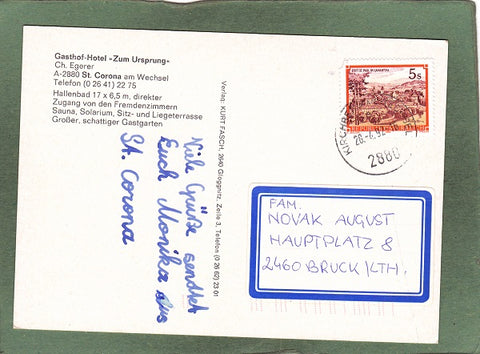 Gasthof-Hotel »Zum Ursprung«
Ch. Egerer
A-2880 St. Corona am Wechsel
Telefon (0 26 41) 22 75
Hallenbad 17 x 6,5 m, direkter
Zugang von den Fremdenzimmern
Sauna, Solarium, Sitz- und Liegeterrasse
Großer, schattiger Gastgarten
Verlag: KURT FASCH, 2640 Gloggnitz, Zeile 3, Telefon (0 26 62) 23 01
Viele Grüße sendet
Euch Monika aus
St. Corona
5s
REPUBLIK ÖSTERREICH
2880
FAM.
NOVAK AUGUST
HAUPTPLATZ 8
2460 BRUCK/LTH.